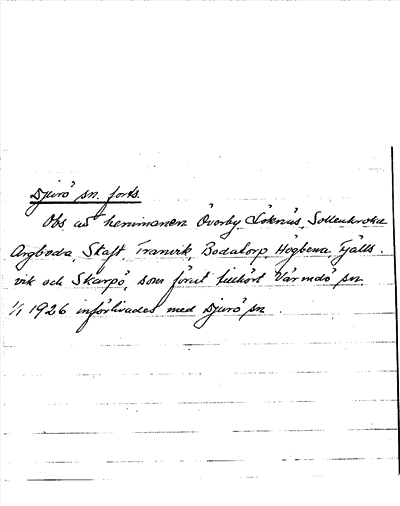 Djurö sn. forts.
Obs att hemmanen Överby, Löknäs, Sollenkroka
Örgboda, Skaft Tranvik, Bodatorp, Högbena, Fjälls-
vik och Skarpö, som förut tillhört Värmdö sn.
1/1 1926 införlivades med Djurö sn.